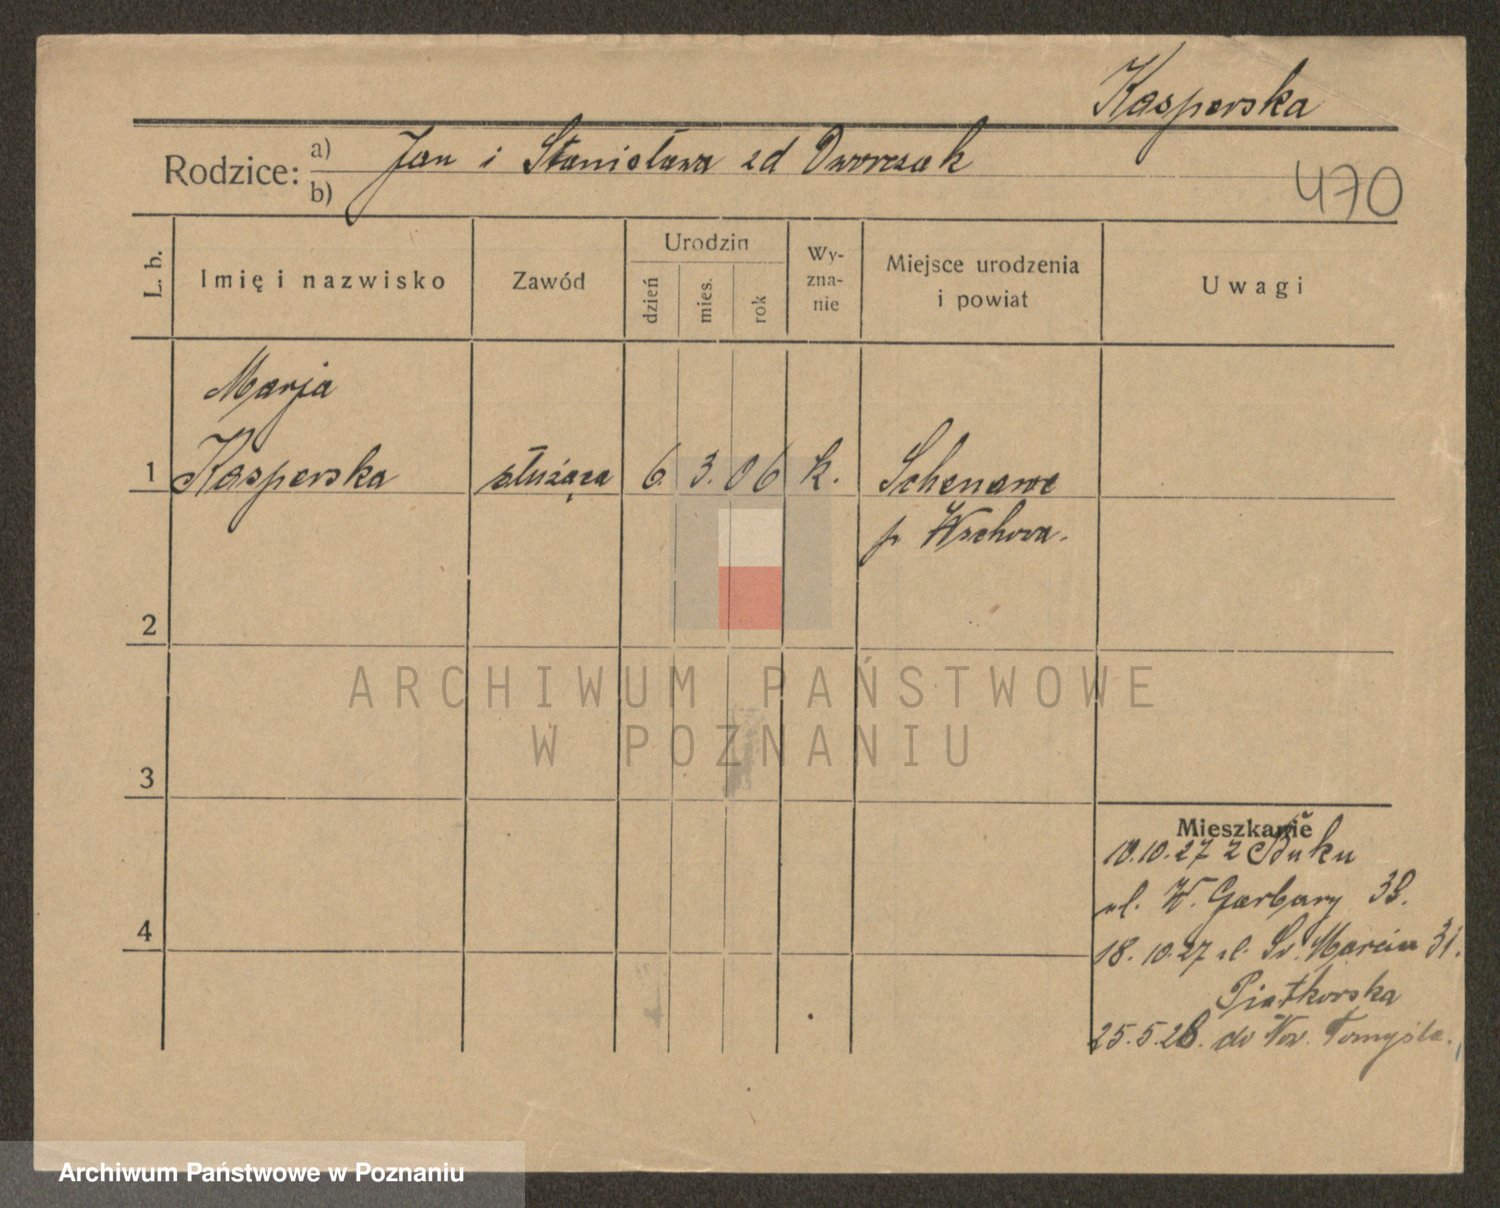 Kasperska
Rodzice: a) Jan i Stanisława zd Dworczak
b)
470
L. b.
Imię i nazwisko
Zawód
Urodzin
dzień
mies.
rok
Wy-
zna-
nie
Miejsce urodzenia
i powiat
Uwagi
Marja
1 Kasperska służąca 6. 3. 06 k.
p. Wschowa.
2
3
4
Mieszkanie
10.10.27 z Buku
ul. W. Garbary 38.
18.10.27 ul. Św. Marcin 31.
Piatkowska
25.5.28. do Now. Tomyśla.
ARCHIWUM PAŃSTWOWE
W POZNANIU
Archiwum Państwowe w Poznaniu